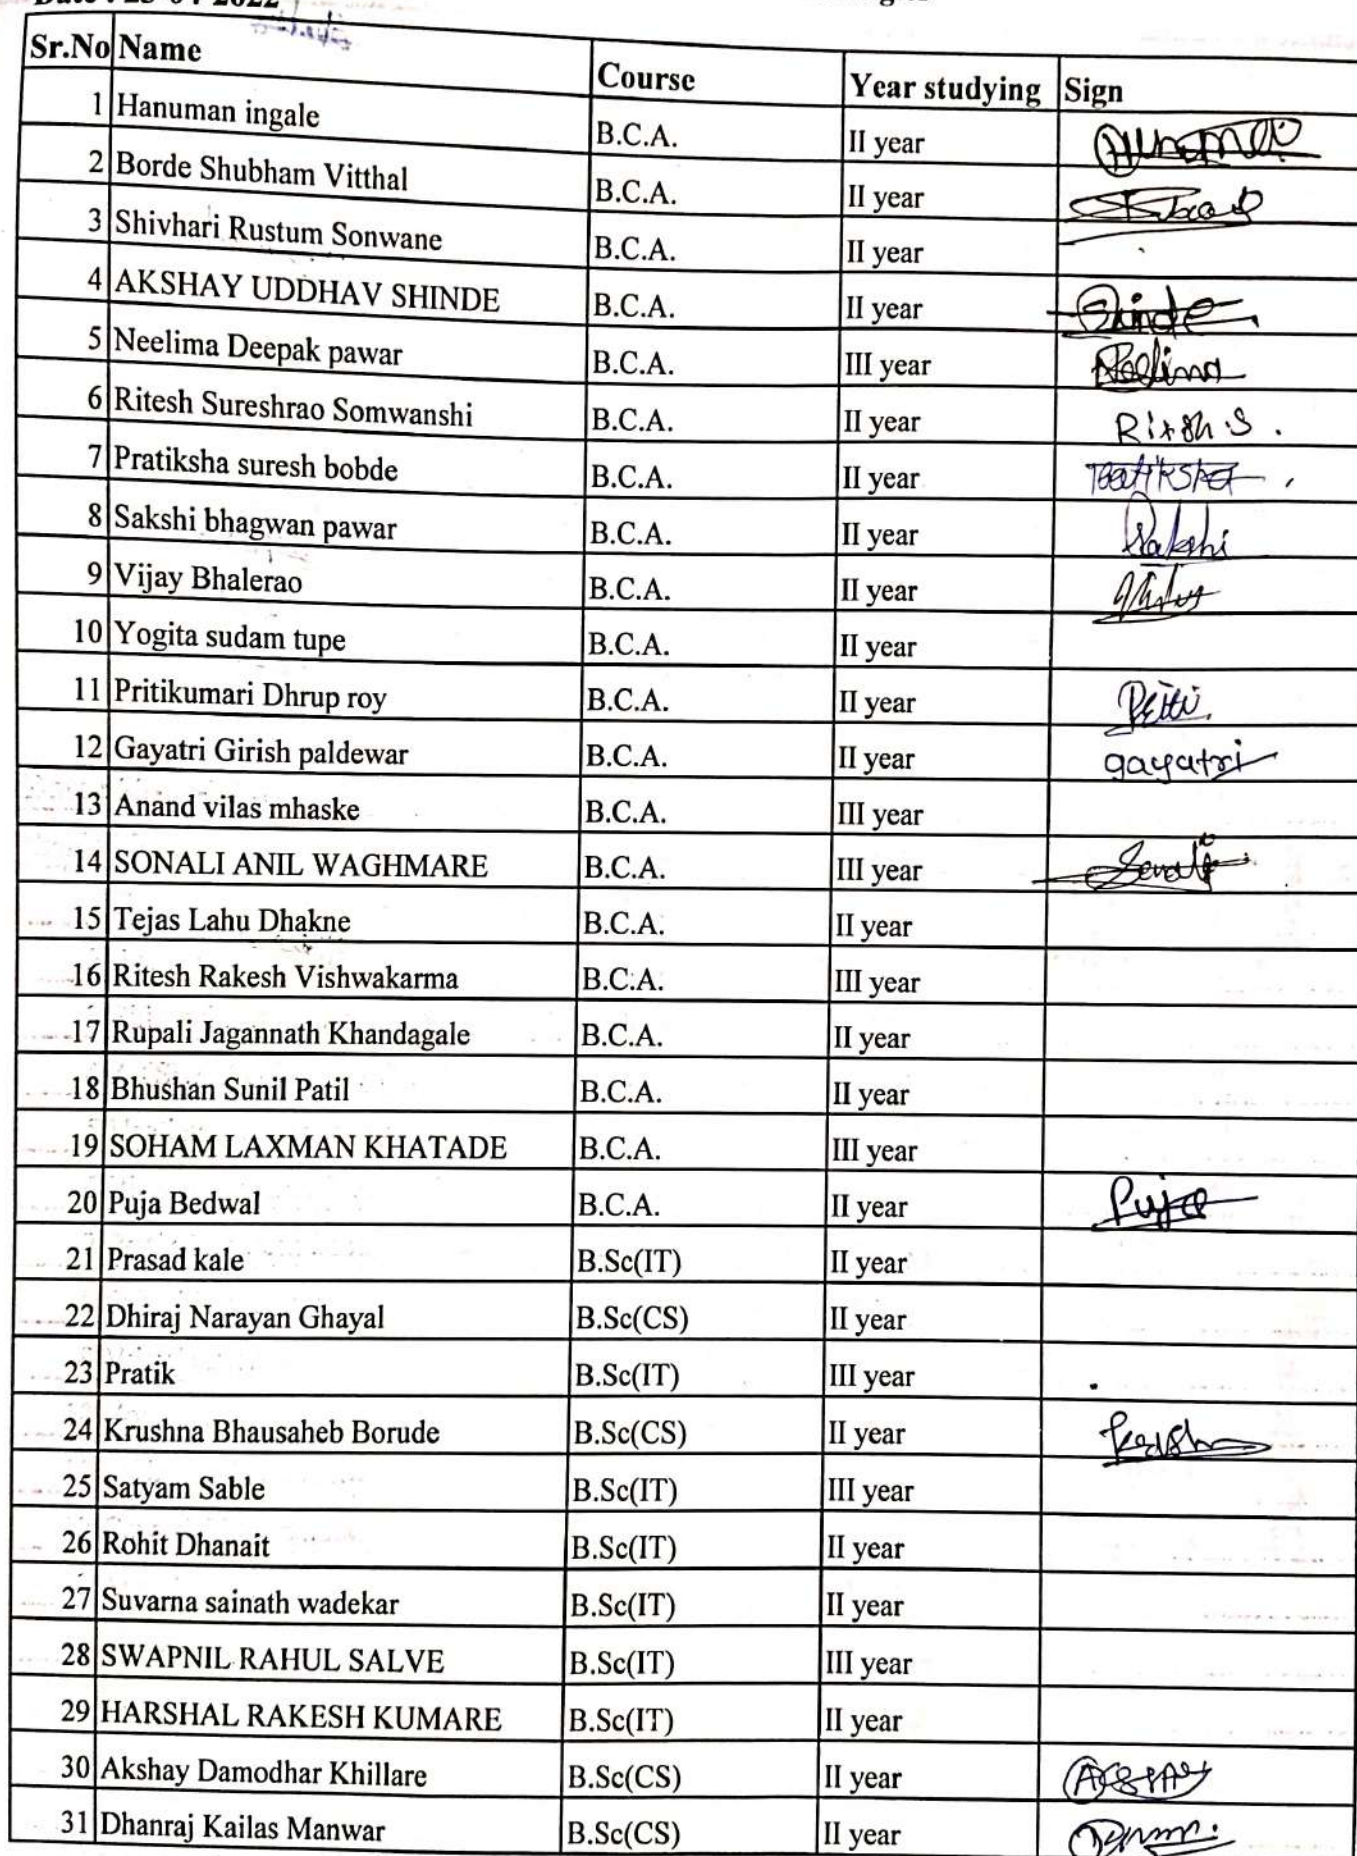 Sr.No Name Course Year studying Sign
1 Hanuman ingale B.C.A. II year
2 Borde Shubham Vitthal B.C.A. II year
3 Shivhari Rustum Sonwane B.C.A. II year
4 AKSHAY UDDHAV SHINDE B.C.A. II year Shinde
5 Neelima Deepak pawar B.C.A. III year Neelima
6 Ritesh Sureshrao Somwanshi B.C.A. II year Ritesh.S.
7 Pratiksha suresh bobde B.C.A. II year
8 Sakshi bhagwan pawar B.C.A. II year Sakshi
9 Vijay Bhalerao B.C.A. II year
10 Yogita sudam tupe B.C.A. II year
11 Pritikumari Dhrup roy B.C.A. II year Priti
12 Gayatri Girish paldewar B.C.A. II year gayatri
13 Anand vilas mhaske B.C.A. III year
14 SONALI ANIL WAGHMARE B.C.A. III year Sonali
15 Tejas Lahu Dhakne B.C.A. II year
16 Ritesh Rakesh Vishwakarma B.C.A. III year
17 Rupali Jagannath Khandagale B.C.A. II year
18 Bhushan Sunil Patil B.C.A. II year
19 SOHAM LAXMAN KHATADE B.C.A. III year
20 Puja Bedwal B.C.A. II year Puja
21 Prasad kale B.Sc(IT) II year
22 Dhiraj Narayan Ghayal B.Sc(CS) II year
23 Pratik B.Sc(IT) III year
24 Krushna Bhausaheb Borude B.Sc(CS) II year
25 Satyam Sable B.Sc(IT) III year
26 Rohit Dhanait B.Sc(IT) II year
27 Suvarna sainath wadekar B.Sc(IT) II year
28 SWAPNIL RAHUL SALVE B.Sc(IT) III year
29 HARSHAL RAKESH KUMARE B.Sc(IT) II year
30 Akshay Damodhar Khillare B.Sc(CS) II year
31 Dhanraj Kailas Manwar B.Sc(CS) II year